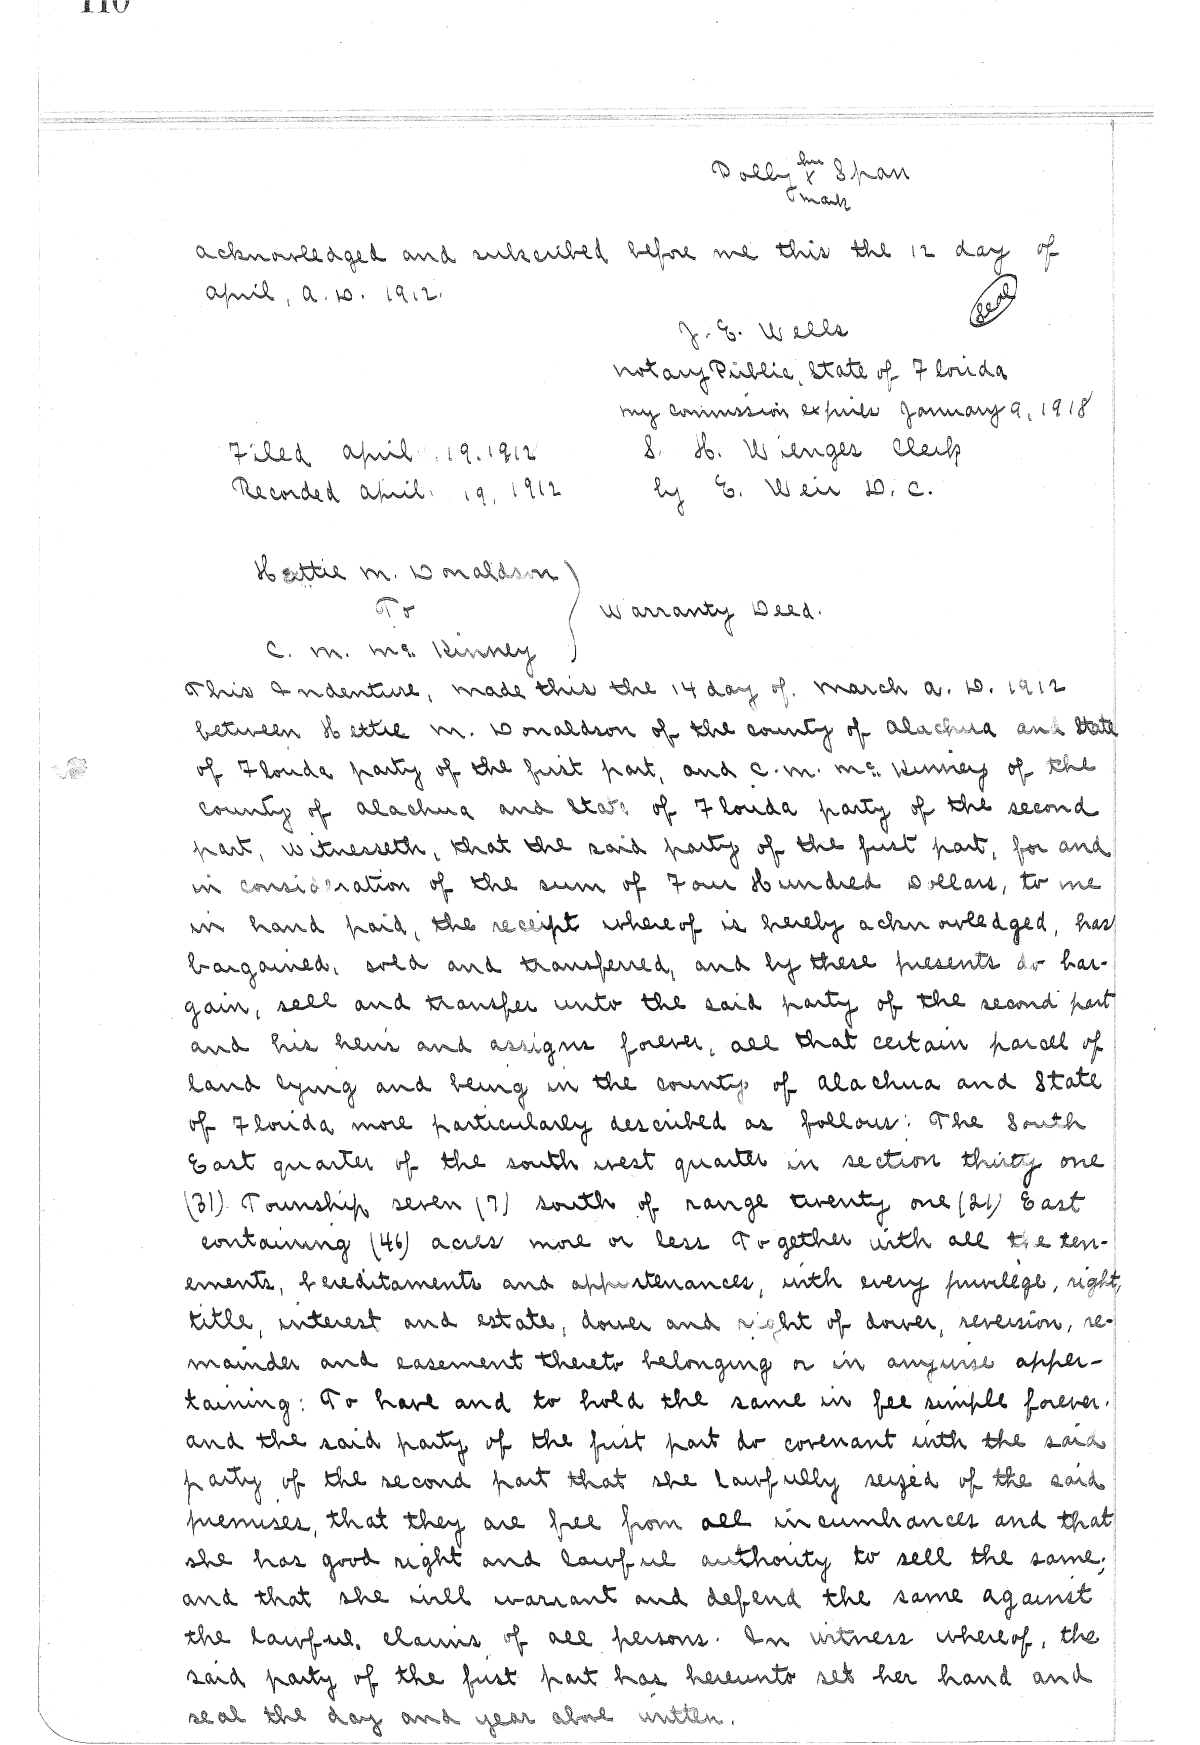 110
Dolly her x Span
mark
acknowledged and subscribed before me this the 12 day of
April, A. D. 1912.
Seal
J. E. Wells
Notary Public, State of Florida
my commission expires January 9, 1918
Filed April 19. 1912 S. H. Wienges Clerk
Recorded April 19, 1912 by E. Weir D. C.
Hattie M. Donaldson
To Warranty Deed.
C. M. McKinney
This Indenture, made this the 14 day of. March A. D. 1912
between Hettie M. Donaldson of the county of Alachua and State
of Florida party of the first part, and C. M. McKinney of the
county of Alachua and State of Florida party of the second
part, witnesseth, that the said party of the first part, for and
in consideration of the sum of Four Hundred Dollars, to me
in hand paid, the receipt whereof is hereby acknowledged, has
bargained, sold and transferred, and by these presents do bar-
gain, sell and transfer unto the said party of the second part
and his heirs and assigns forever, all that certain parcel of
land lying and being in the county of Alachua and State
of Florida more particularly described as follows: The South
East quarter of the south west quarter in section thirty one
(31) Township seven (7) south of range twenty one (21) East
containing (46) acres more or less Together with all the ten-
ements, hereditaments and appurtenances, with every privilege, right,
title, interest and estate, dower and right of dower, reversion, re-
mainder and easement thereto belonging or in anywise apper-
taining: To have and to hold the same in fee simple forever.
and the said party of the first part do covenant with the said
party of the second part that she lawfully seized of the said
premises, that they are free from all incumbrances and that
she has good right and lawful authority to sell the same,
and that she will warrant and defend the same against
the lawful claims of all persons. In witness whereof, the
said party of the first part has hereunto set her hand and
seal the day and year above written.